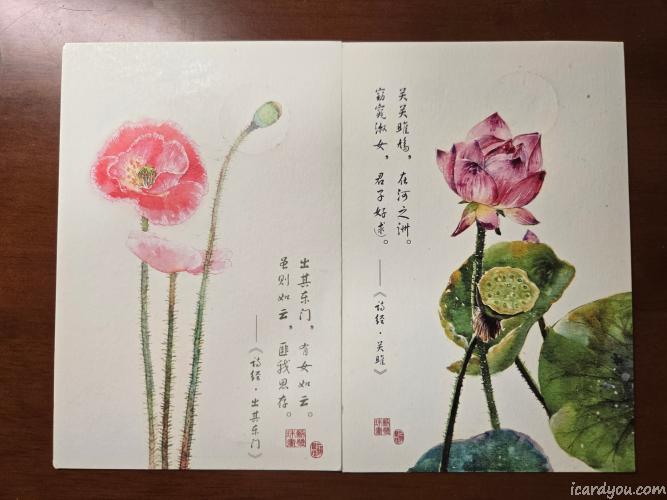 出其东门，有女如云。
虽则如云，匪我思存。
——《诗经·出其东门》
关关雎鸠，在河之洲。
窈窕淑女，君子好逑。
——《诗经·关雎》
icardyou.com